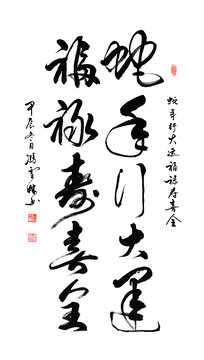 蛇年行大运福禄寿喜全
蛇年行大运
福禄寿喜全
甲辰冬月冯雪林书